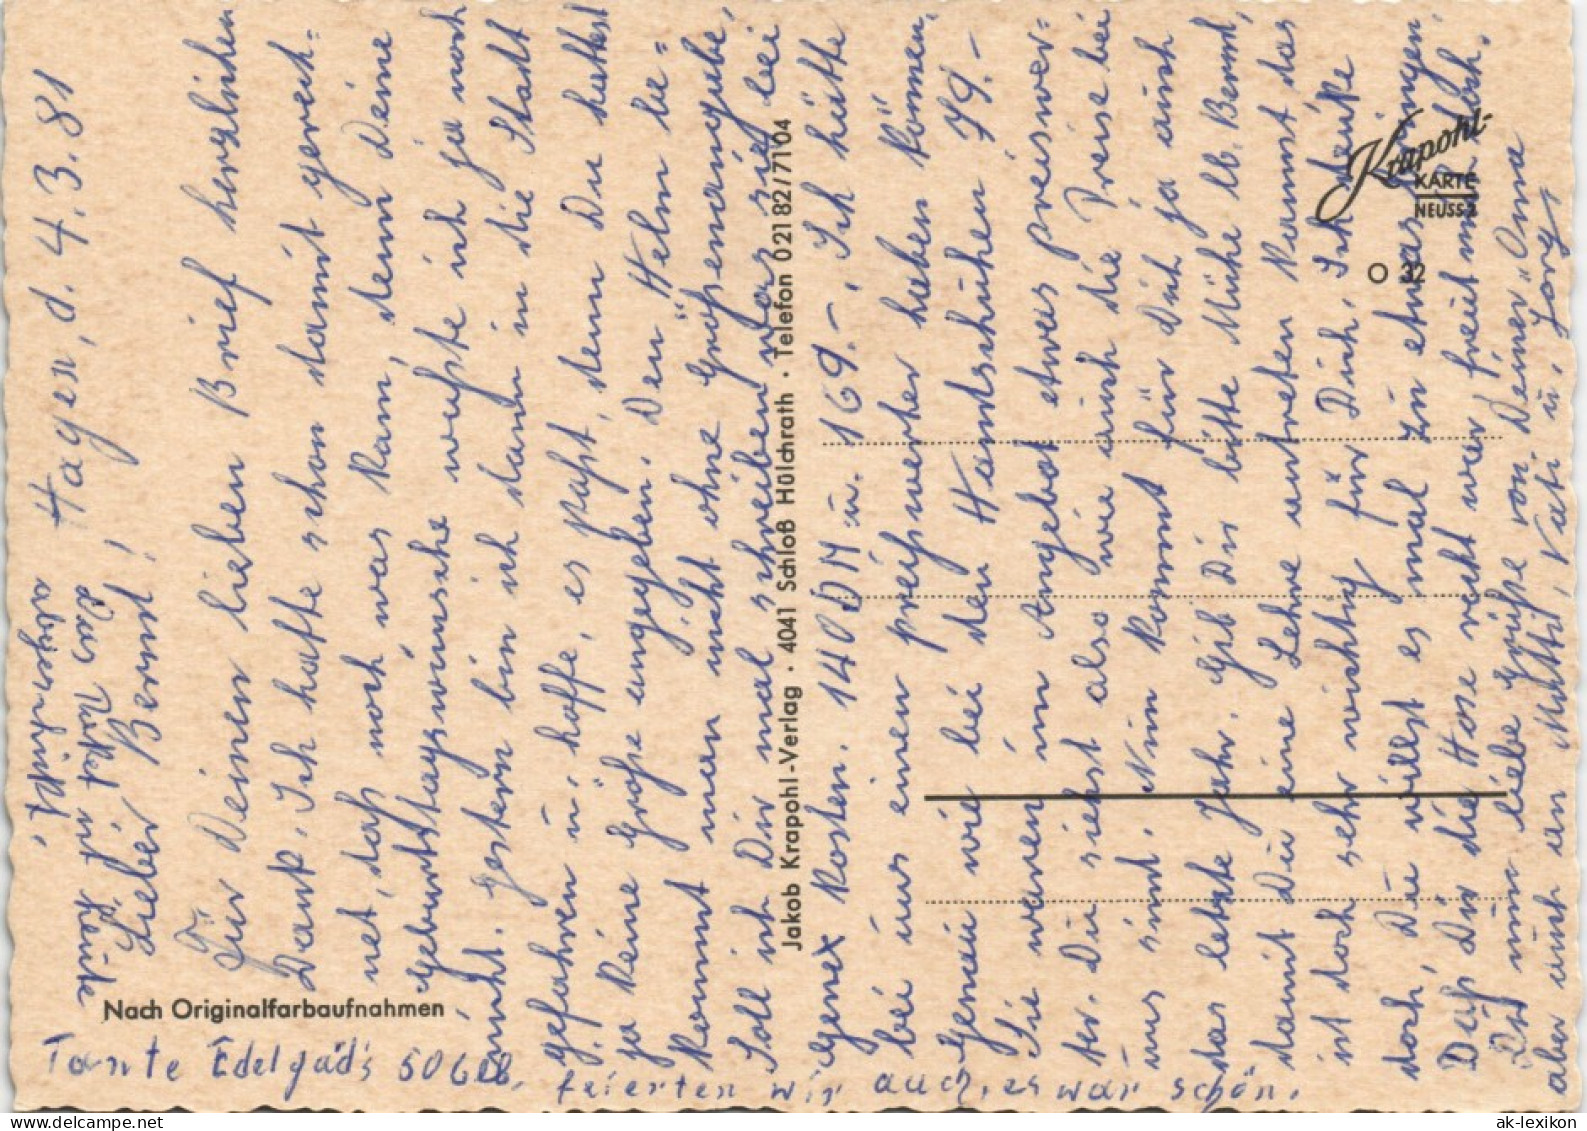 Hagen, d. 4.3.81
Lieber Bernt!
Für Deinen lieben Brief herzlichen
Dank. Ich hatte schon damit gerech=
net, daß noch was kam, denn Deine
Geburtstagswünsche wußte ich ja noch
nicht. Gestern bin ich dann in die Stadt
gefahren u. hoffe, es paßt, denn Du hattest
ja keine Größe angegeben. Den "Helm be=
kommt man nicht ohne Größenangabe.
Soll ich Dir mal schreiben was sie bei
Gene kosten. 140 DM u. 169.-. Ich hätte
bei uns einen preißwerter haben können.
Genau wie bei den Handschuhen 79.-
Sie waren im Angebot etwas preiswer=
ter. Du siehst also wie auch die Preise bei
uns sind. Nun kommt für Dich ja auch
das letzte Jahr. Gib Dir bitte Mühe lb. Bernt,
damit Du eine Lehre antreten kannst das
ist doch sehr wichtig für Dich. Ich denke
doch, Du willst es mal zu etwas bringen.
Daß Dir die Hose recht war freut mich doch.
Dir nun liebe Grüße von Deiner Oma
aber auch an Mutti, Vati u. Jörg
heute ist Paket
abgeschickt.
Tante Edelgad's 50 Geb.
feierten wir auch, es war schön.
Nach Originalfarbaufnahmen
Jakob Krapohl-Verlag · 4041 Schloß Hülchrath · Telefon 02182/7104
Krapohl-
KARTE
NEUSS 2
O 32
delcampe.net
ak-lexikon